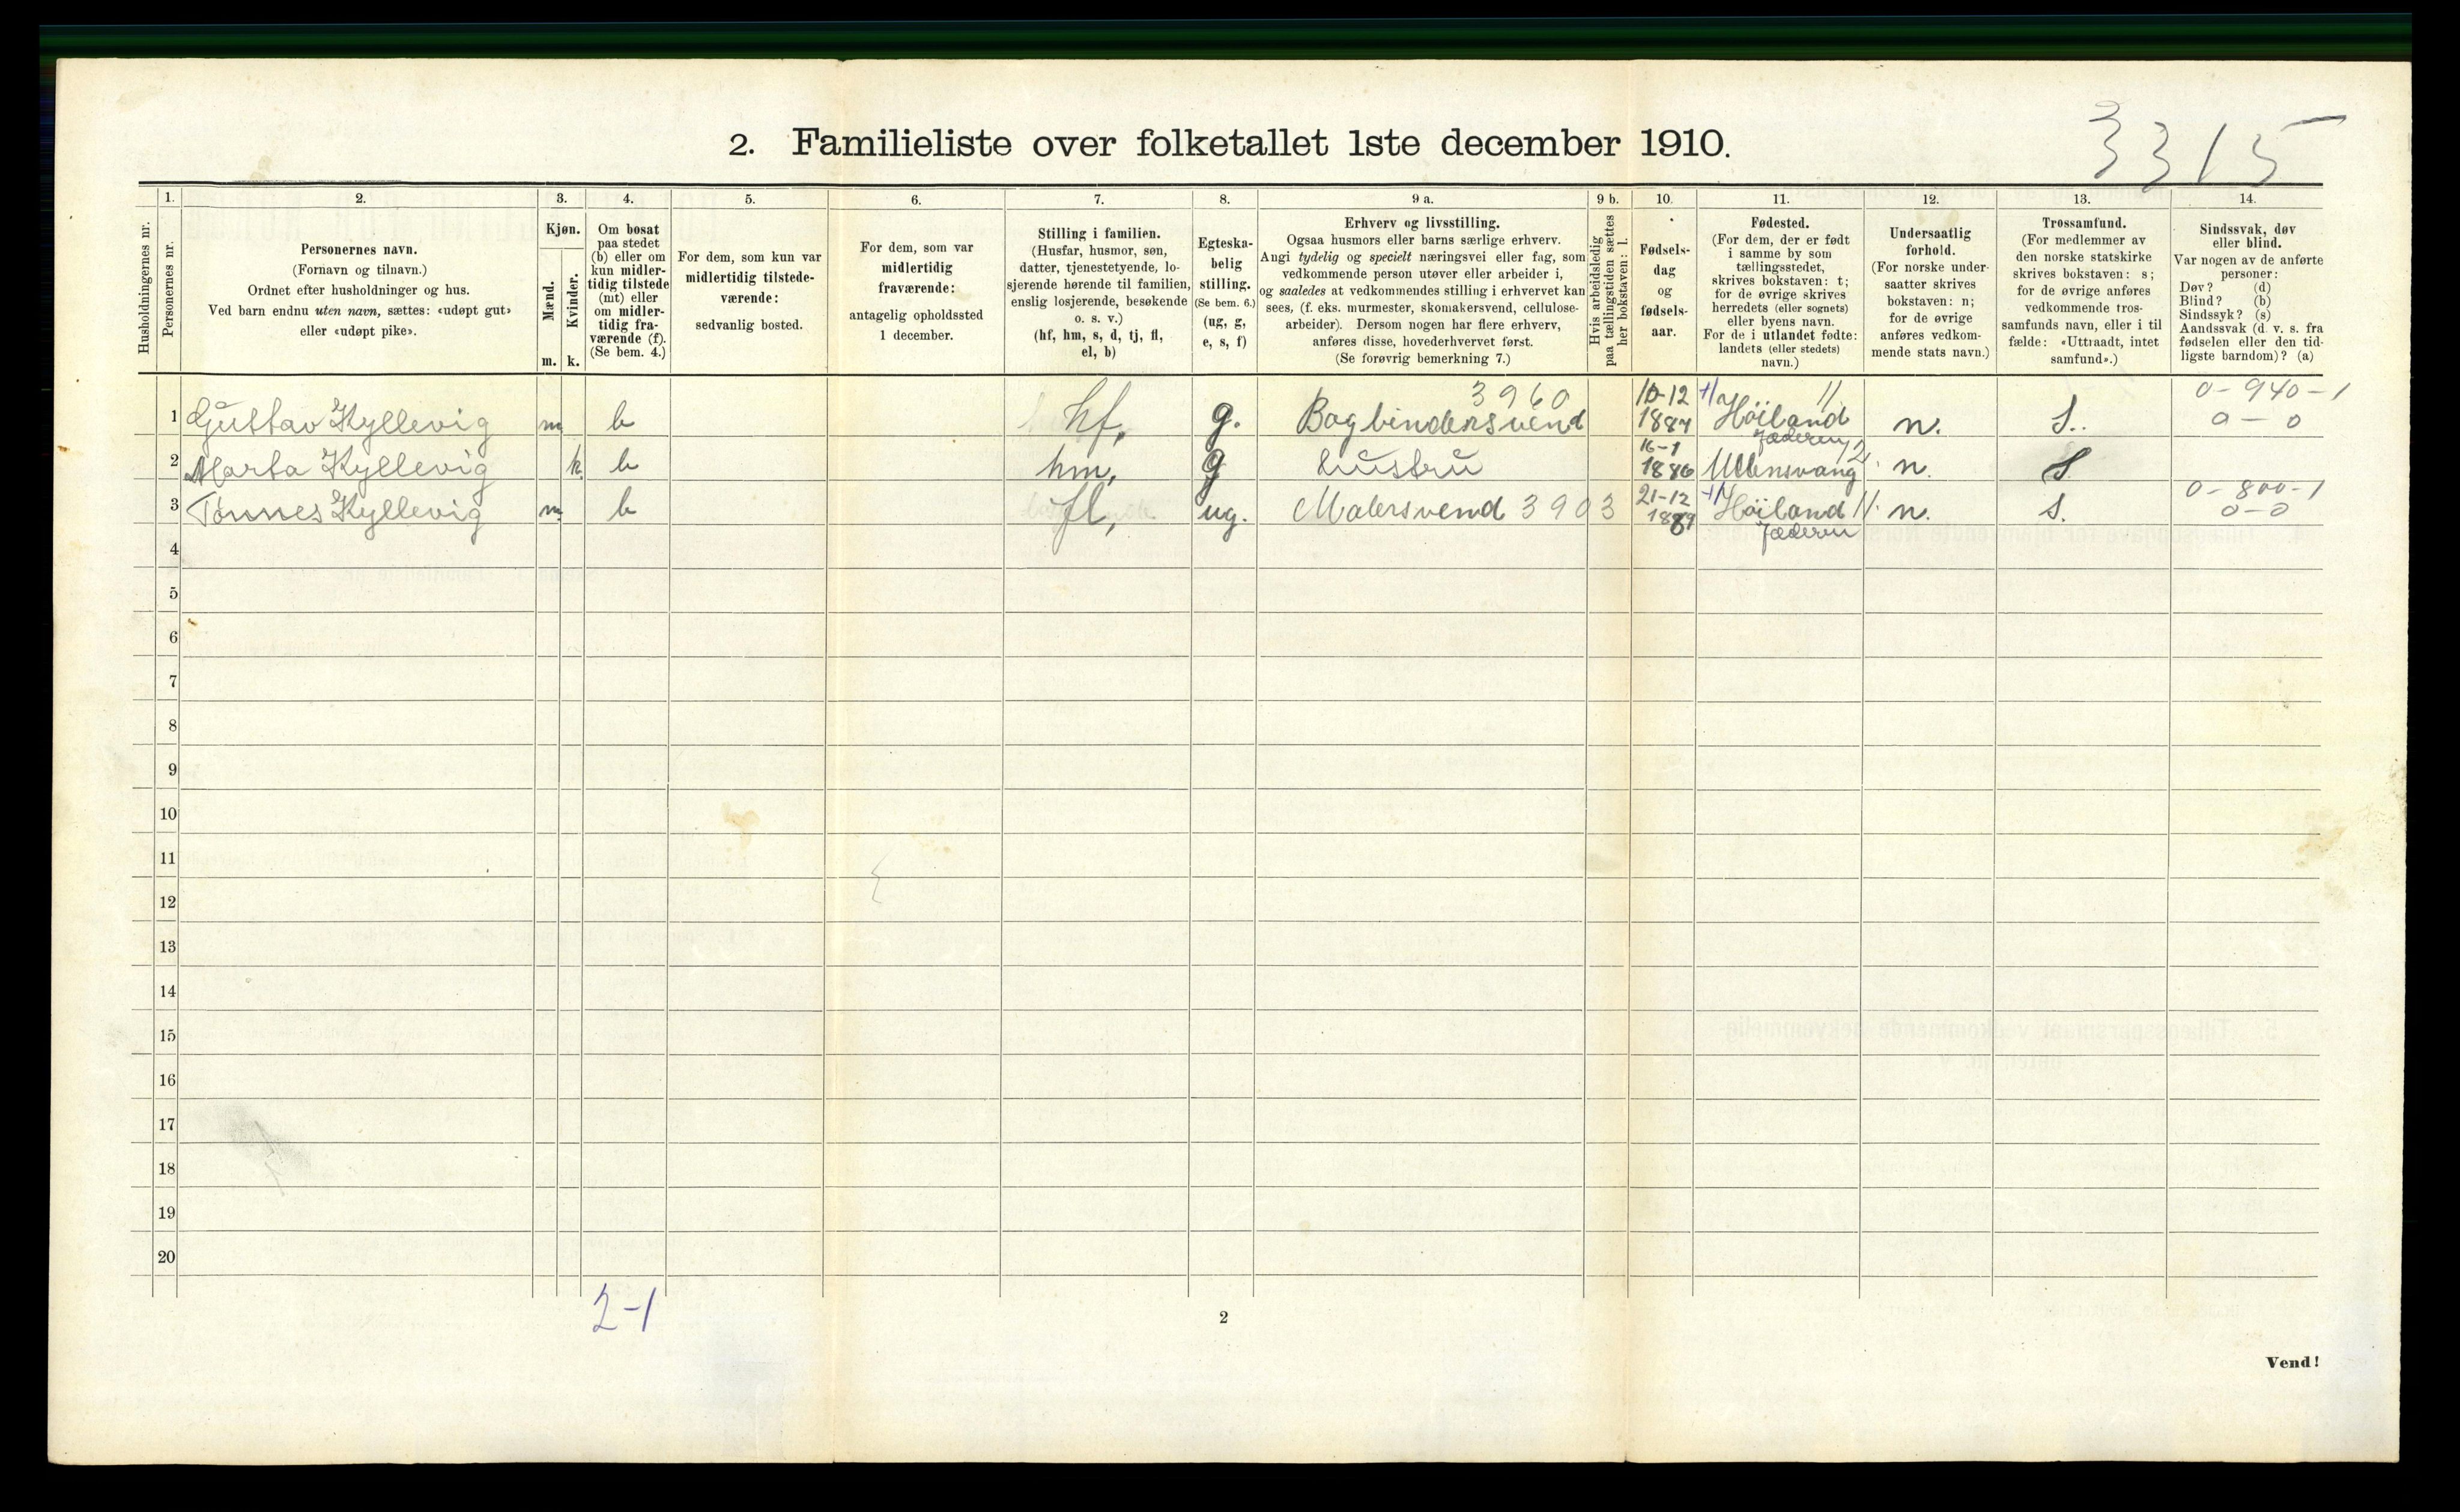 3315
2. Familieliste over folketallet 1ste december 1910.
1. 2. 3. 4. 5. 6. 7. 8. 9 a. 9 b. 10. 11. 12. 13. 14.
Husholdningernes nr.
Personernes nr.
Personernes navn.
(Fornavn og tilnavn.)
Ordnet efter husholdninger og hus.
Ved barn endnu uten navn, sættes: «udøpt gut»
eller «udøpt pike».
Kjøn.
Mænd.
m.
Kvinder.
k.
Om bosat
paa stedet
(b) eller om
kun midler-
tidig tilstede
(mt) eller
om midler-
tidig fra-
værende (f).
(Se bem. 4.)
For dem, som kun var
midlertidig tilstede-
værende:
sedvanlig bosted.
For dem, som var
midlertidig
fraværende:
antagelig opholdssted
1 december.
Stilling i familien.
(Husfar, husmor, søn,
datter, tjenestetyende, lo-
sjerende hørende til familien,
enslig losjerende, besøkende
o. s. v.)
(hf, hm, s, d, tj, fl,
el, b)
Egteska-
belig
stilling.
(Se bem. 6.)
(ug, g,
e, s, f)
Erhverv og livsstilling.
Ogsaa husmors eller barns særlige erhverv.
Angi tydelig og specielt næringsvei eller fag, som
vedkommende person utøver eller arbeider i,
og saaledes at vedkommendes stilling i erhvervet kan
sees, (f. eks. murmester, skomakersvend, cellulose-
arbeider). Dersom nogen har flere erhverv,
anføres disse, hovederhvervet først.
(Se forøvrig bemerkning 7.)
Hvis arbeidsledig
paa tællingstiden sættes
her bokstaven: l.
Fødsels-
dag
og
fødsels-
aar.
Fødested.
(For dem, der er født
i samme by som
tællingsstedet,
skrives bokstaven: t;
for de øvrige skrives
herredets (eller sognets)
eller byens navn.
For de i utlandet fødte:
landets (eller stedets)
navn.)
Undersaatlig
forhold.
(For norske under-
saatter skrives
bokstaven: n;
for de øvrige
anføres vedkom-
mende stats navn.)
Trossamfund.
(For medlemmer av
den norske statskirke
skrives bokstaven: s;
for de øvrige anføres
vedkommende tros-
samfunds navn, eller i til
fælde: «Uttraadt, intet
samfund».)
Sindssvak, døv
eller blind.
Var nogen av de anførte
personer:
Døv? (d)
Blind? (b)
Sindssyk? (s)
Aandssvak (d. v. s. fra
fødselen eller den tid-
ligste barndom)? (a)
3960 10-12 11 0-940-1
1 Gustav Kyllevig m b hf, g. Bogbindersvend 1887 Höiland n. S. 0-0
Jæderen
16-1
2 Marta Kyllevig k b hm, g hustru 1886 Ullensvang n. S
21-12 0-800-1
3 Tönnes Kyllevig m b fl, ug. Malersvend 3903 1889 Höiland 11. n. S. 0-0
Jæderen
4
5
6
7
8
9
10
11
12
13
14
15
16
17
18
19
20
2-1
2
Vend!